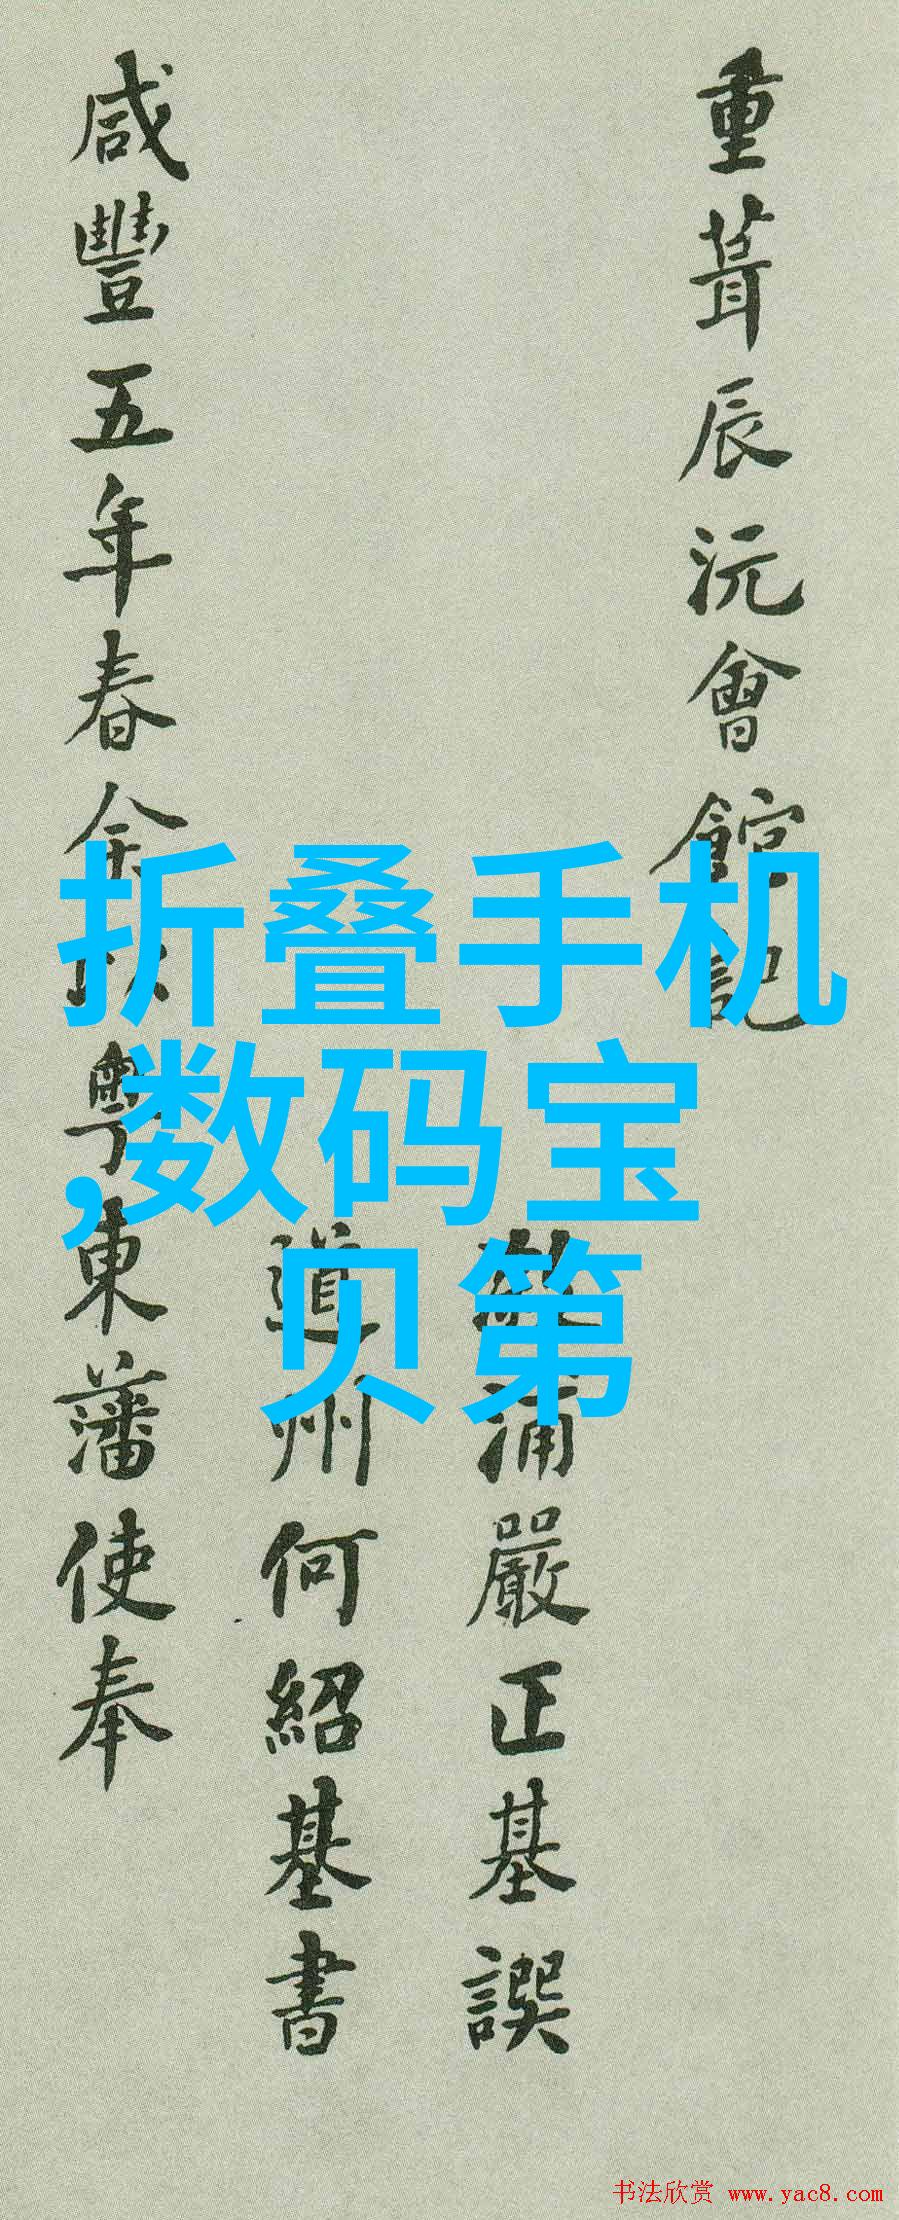 重葺辰沅會館記
浦嚴正基譔
道州何紹基書
咸豐五年春余粵東藩使奉
折叠手机
,数码宝
贝第
书法欣赏 www.yac8.com